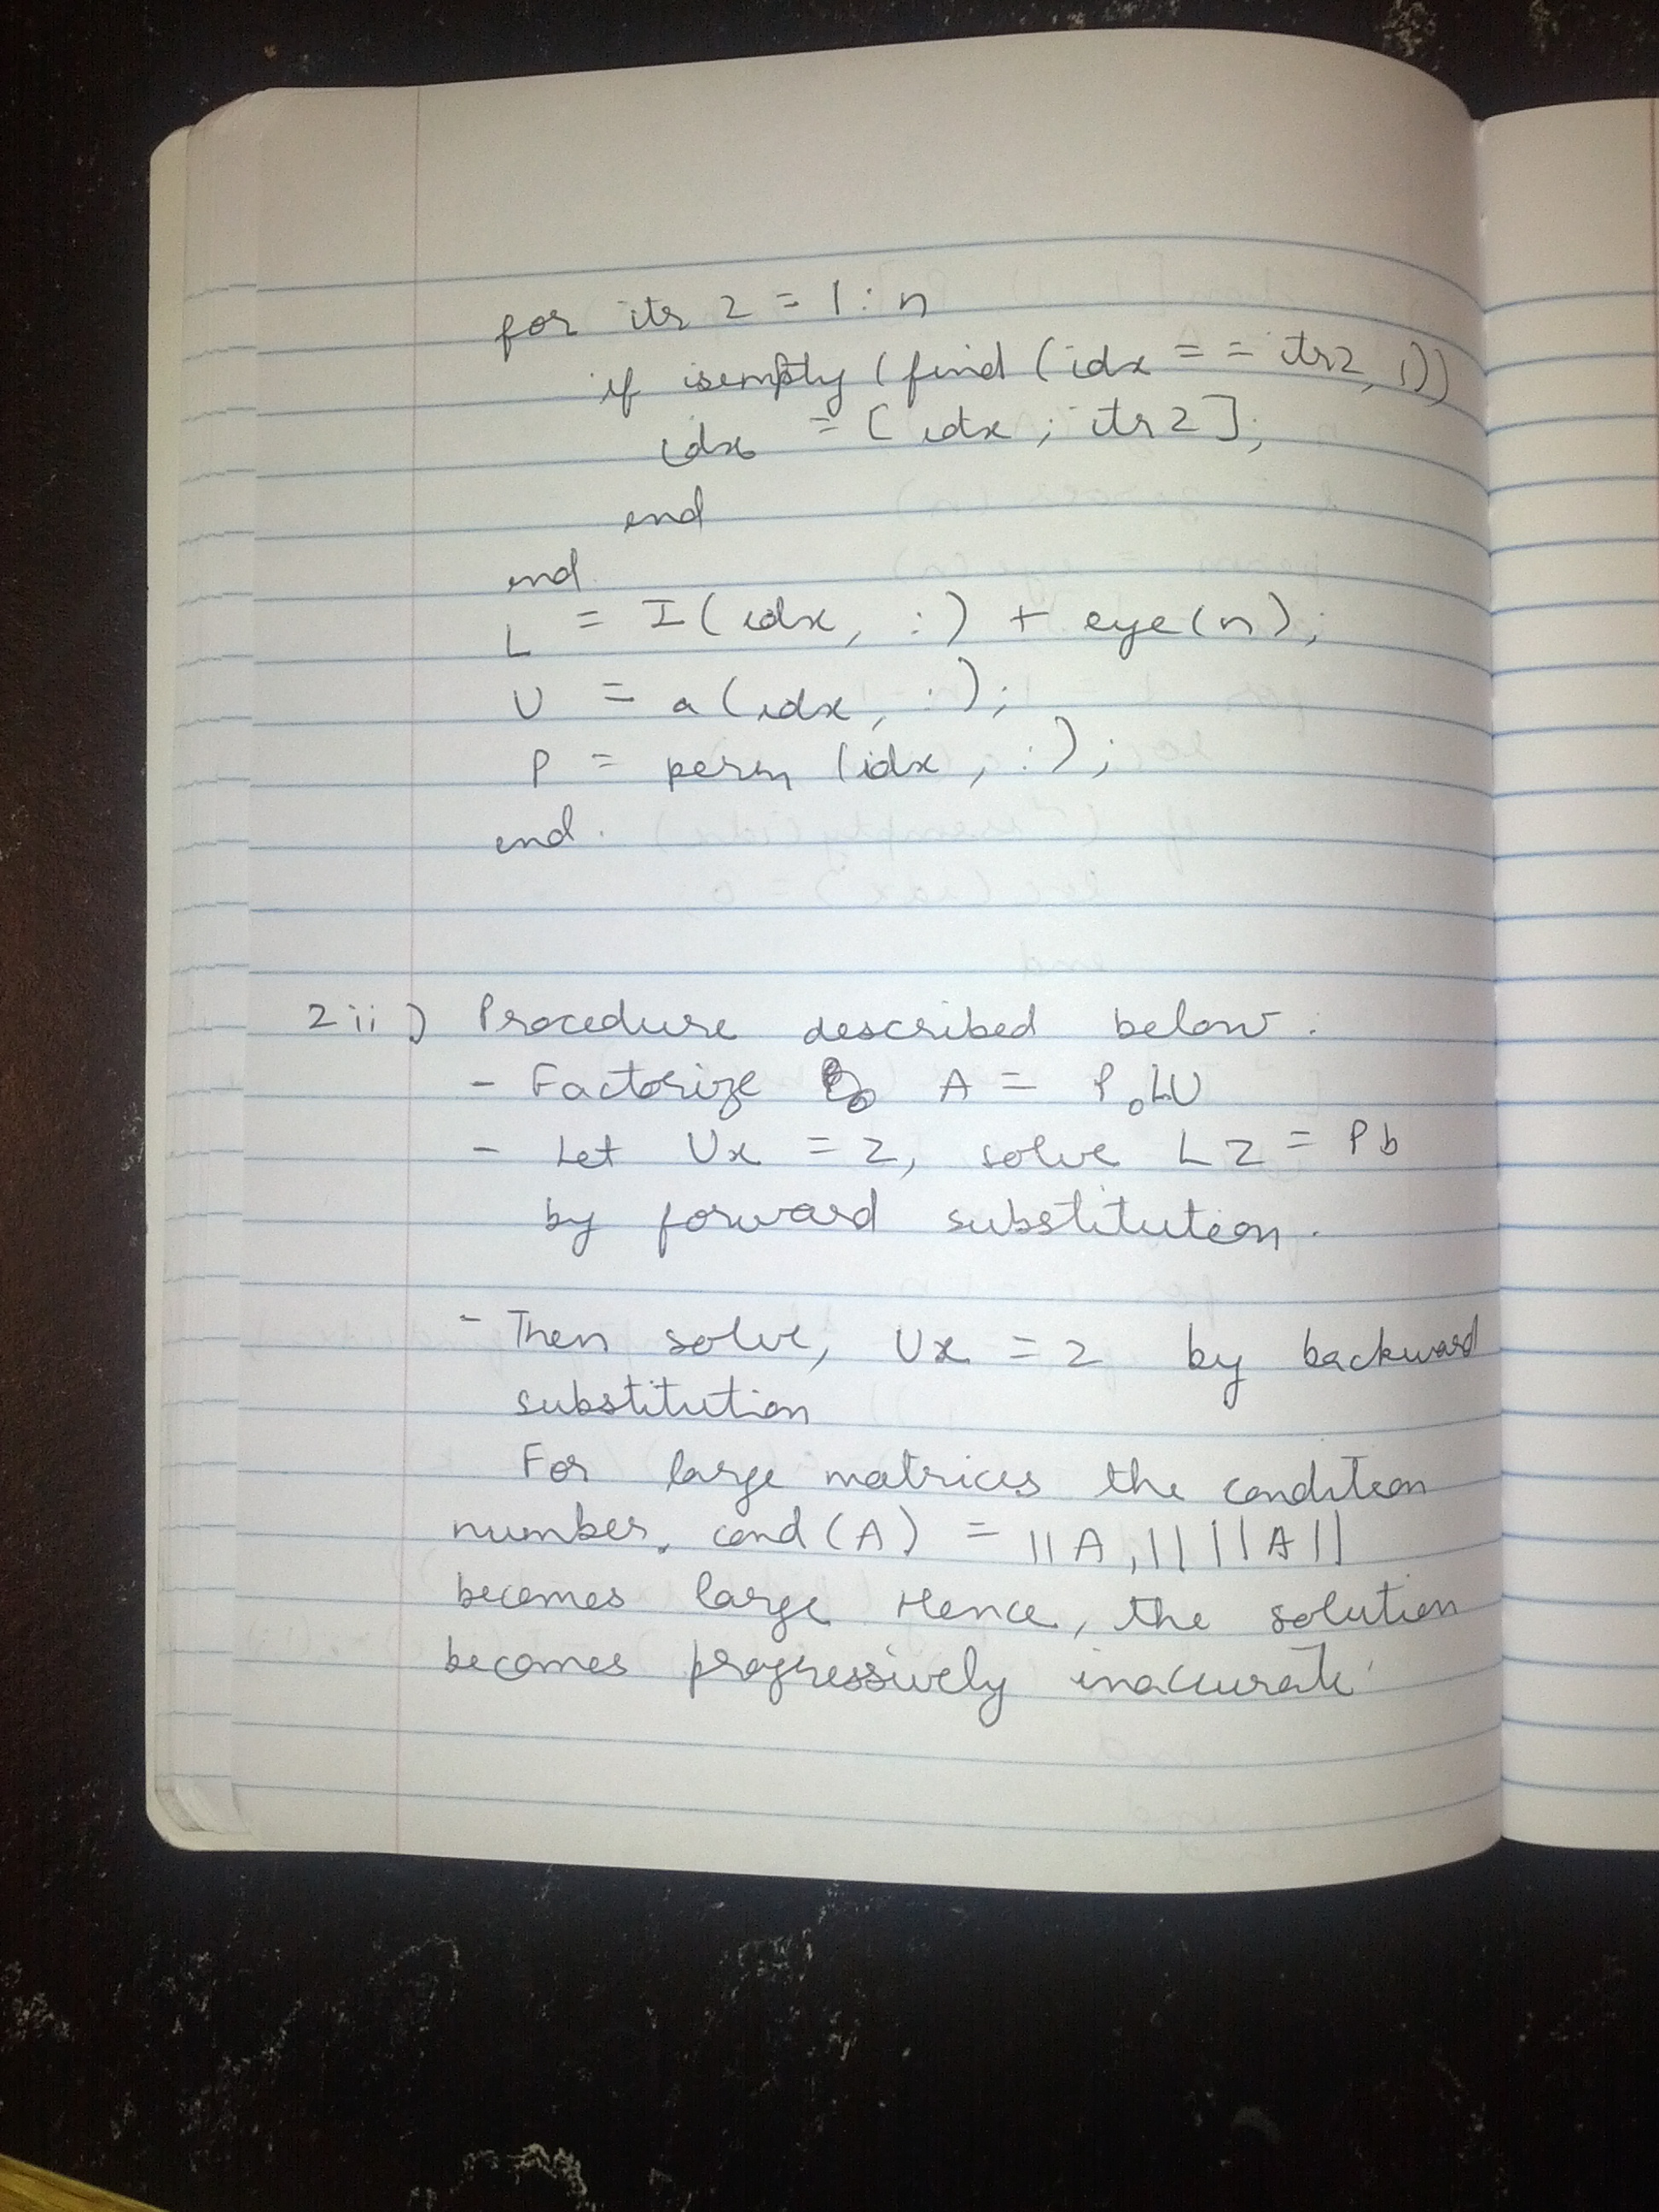 for itr 2 = 1 : n
if isempty (find (idx == itr2, 1))
idx = [ idx ; itr 2 ];
end
end
L = I (idx, :) + eye(n);
U = a (idx, :);
P = perm (idx, :);
end.
2 ii) Procedure described below.
- Factorize A = P₀LU
- Let Ux = z, solve Lz = Pb
by forward substitution.
- Then solve, Ux = z by backward
substitution
For large matrices the condition
number, cond (A) = ||A,|| ||A||
becomes large Hence, the solution
becomes progressively inaccurate